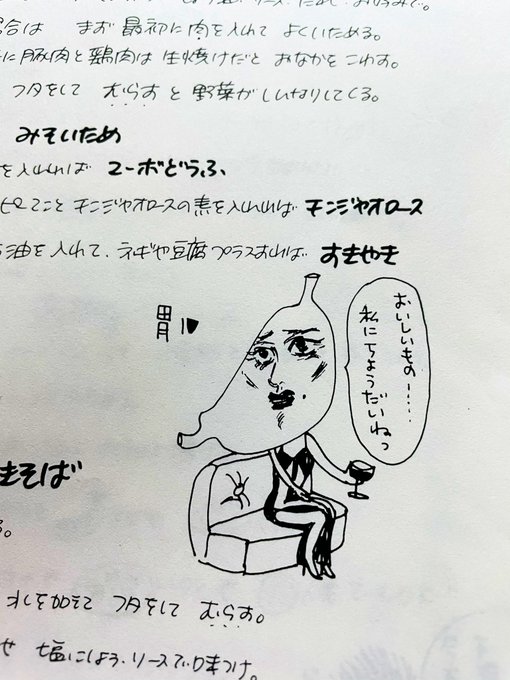 場合は まず最初に肉を入れて よくいためる。
に豚肉と鶏肉は生焼けだと おなかをこわす。
フタをして むらすと野菜がしんなりしてくる。
みそいため
を入れれば マーボどうふ
ピーマンとこと チンジャオロースの素を入れれば チンジャオロース
油を入れて、ネギや豆腐プラスすれば すきやき
胃
おいしいものー……
私にちょうだいねっ
きそば
る。
水を加えて フタをして むらす。
せ 塩こしょう・ソースで味つけ。